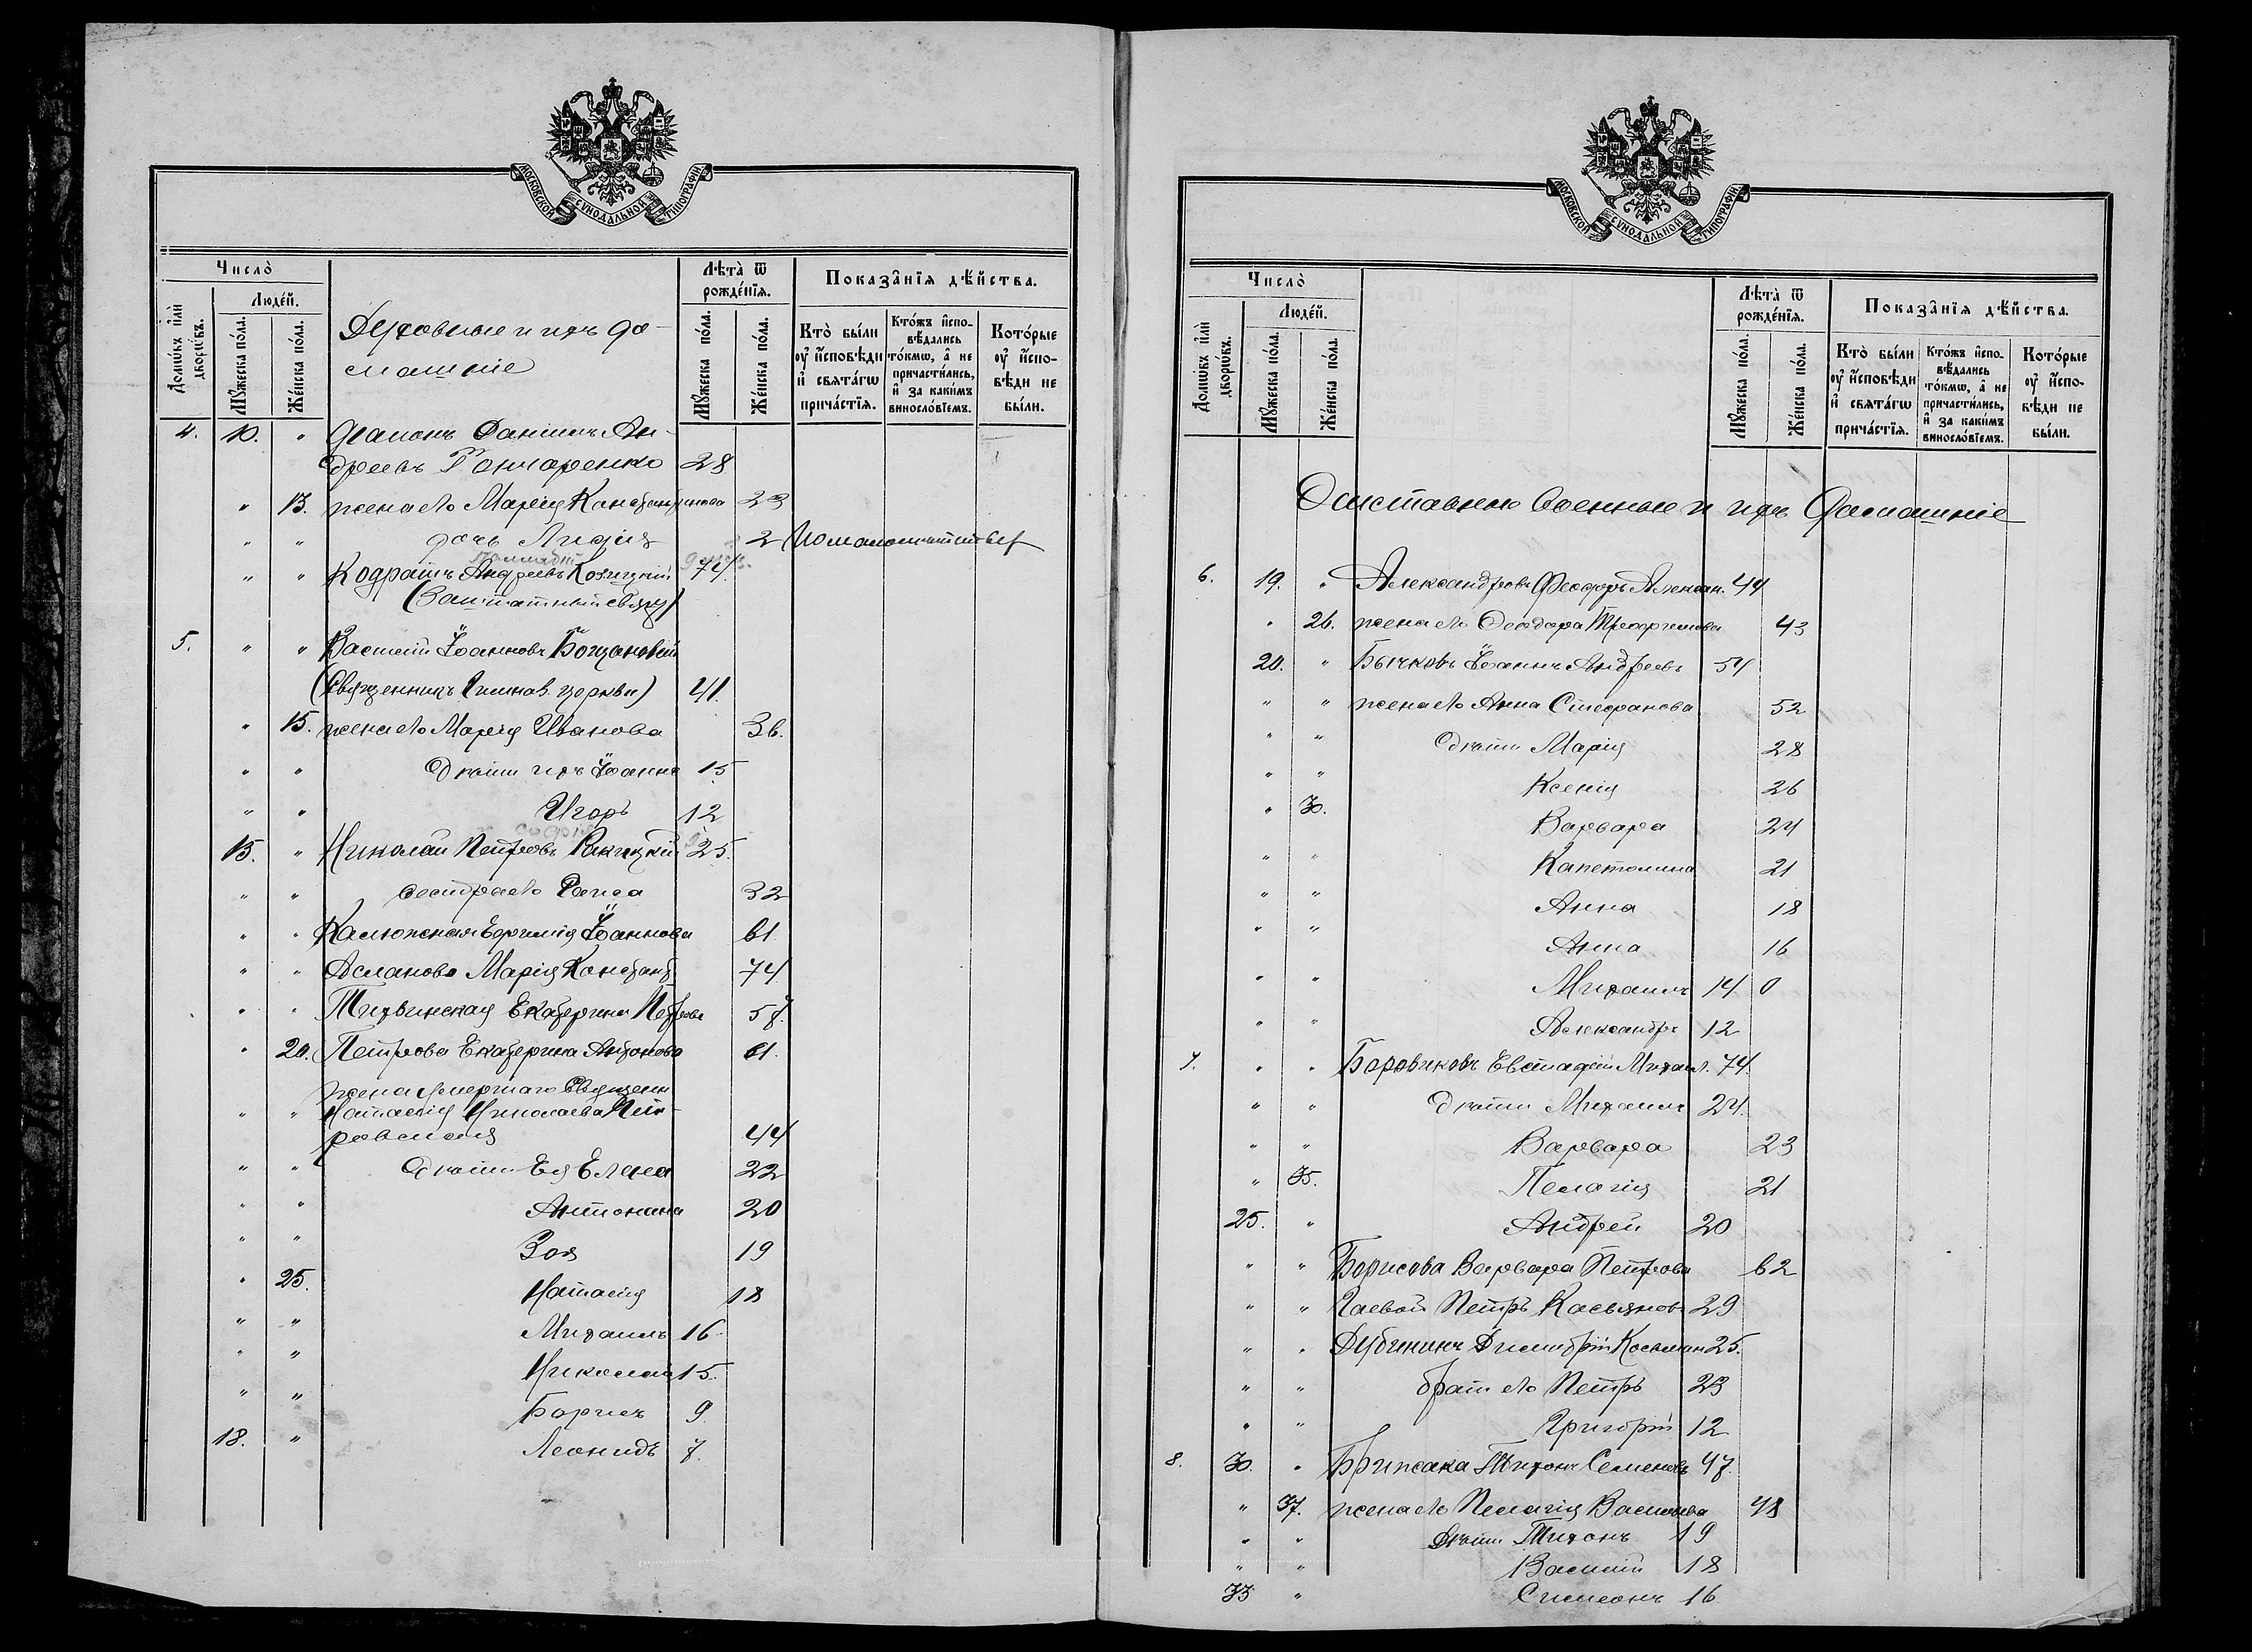 МОСКОВСКОЙ СѴНОДАЛЬНОЙ ТИПОГРАФІИ
Число̀
Домѡ́въ и҆лѝ дворѡ́въ.
Люде́й.
Мꙋ́жеска по́ла.
Же́нска по́ла.
Духовные и ихъ до-
машніе
Лѣта̀ ѿ рожде́нїѧ.
Мꙋ́жеска по́ла.
Же́нска по́ла.
Показа̑нїѧ дѣ́йства.
Кто̀ бы́ли ᲂу҆ и҆сповѣ́ди и҆ свѧта́гѡ прича́стїѧ.
Кто́жъ и҆спо-вѣ́дались то́кмѡ, а҆ не причасти́лись, и҆ за каки́мъ винносло́вїемъ.
Кото́рые ᲂу҆ и҆спо-вѣ́ди не бы́ли.
4. 10. " Діаконъ Даніилъ Ан-
дреевъ Гончаренко 28
" 13. жена его Марія Константинова 23
" " дочь Лидія 2
" " Кодратъ Андреевъ Козицкій 74.
(Заштатный свящ)
5. " " Василій Іоанновъ Богдановичъ
(Священникъ церкви) 41.
" 15. жена его Марія Иванова 36.
" " дѣти ихъ Іоаннъ 15
" " Игорь 12
15. " Николай Петровъ Ракицкій 25.
" " сестра его Раиса 32
" " Калюжная Евфимія Іоаннова 61
" " Асланова Марія Констант. 74
" " Тихвинская Екатерина Петрова 57.
" 20. Петрова Екатерина Антонова 61.
жена умершаго Священ
" " Наталія Николаева Пет-
ровская 44
" " дѣти Ея Елена 22
" " Антонина 20
" " Зоя 19
" 25. Наталія 18
" " Михаилъ 16
" " Николай 15.
" " Борисъ 9
18. " Леонидъ 7.
МОСКОВСКОЙ СѴНОДАЛЬНОЙ ТИПОГРАФІИ
Число̀
Домѡ́въ и҆лѝ дворѡ́въ.
Люде́й.
Мꙋ́жеска по́ла.
Же́нска по́ла.
Лѣта̀ ѿ рожде́нїѧ.
Мꙋ́жеска по́ла.
Же́нска по́ла.
Показа̑нїѧ дѣ́йства.
Кто̀ бы́ли ᲂу҆ и҆сповѣ́ди и҆ свѧта́гѡ прича́стїѧ.
Кто́жъ и҆спо-вѣ́дались то́кмѡ, а҆ не причасти́лись, и҆ за каки́мъ винносло́вїемъ.
Кото́рые ᲂу҆ и҆спо-вѣ́ди не бы́ли.
Отставные военные и ихъ домашніе
6. 19. " Александровъ Феодоръ Алексан. 44
" 26. жена его Феодора Трофимова 43
20. " Бычковъ Іоаннъ Андреевъ 54
" " жена его Анна Стефанова 52
" " дѣти Марія 28
" " Ксенія 26
" 30. Варвара 24
" " Капетолина 21
" " Анна 18
" " Анна 16
" " Михаилъ 14 0
" " Александръ 12
7. " " Боровиковъ Евстафій Михаил. 74.
" " дѣти Михаилъ 24.
" " Варвара 23
" 35. Пелагія 21
25. " Андрей 20
" " Борисова Варвара Петрова 62
" " Гаевой Петръ Касьяновъ 29
" " Дубининъ Димитрій Косьмин 25.
" " братъ его Петръ 23
" " Григорій 12
8. 30. " Брижака Тихонъ Семеновъ 47.
" 37. жена его Пелагія Васильева 48
" " дѣти Тихонъ 19
" " Василій 18
33 " Симеонъ 16